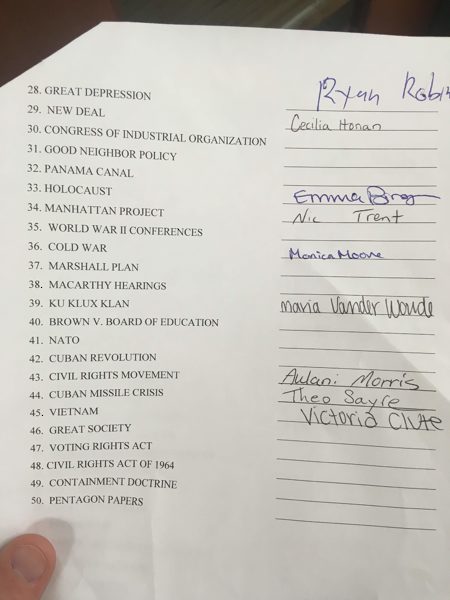 28. GREAT DEPRESSION Ryan
29. NEW DEAL Cecilia Honan
30. CONGRESS OF INDUSTRIAL ORGANIZATION
31. GOOD NEIGHBOR POLICY
32. PANAMA CANAL
33. HOLOCAUST Emma
34. MANHATTAN PROJECT Nic Trent
35. WORLD WAR II CONFERENCES
36. COLD WAR Monica Moore
37. MARSHALL PLAN
38. MACARTHY HEARINGS
39. KU KLUX KLAN maria Vander Woude
40. BROWN V. BOARD OF EDUCATION
41. NATO
42. CUBAN REVOLUTION
43. CIVIL RIGHTS MOVEMENT Aulani Morris
44. CUBAN MISSILE CRISIS Theo Sayre
45. VIETNAM Victoria Clute
46. GREAT SOCIETY
47. VOTING RIGHTS ACT
48. CIVIL RIGHTS ACT OF 1964
49. CONTAINMENT DOCTRINE
50. PENTAGON PAPERS